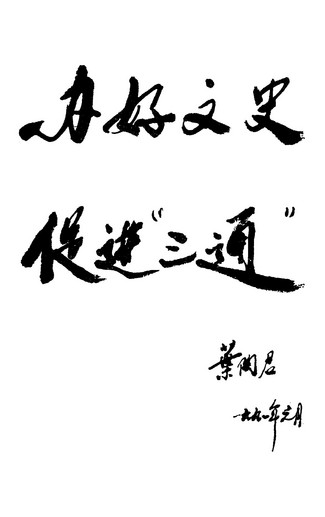 办好文史
促进“三通”
葉闻君
一九九一年元月